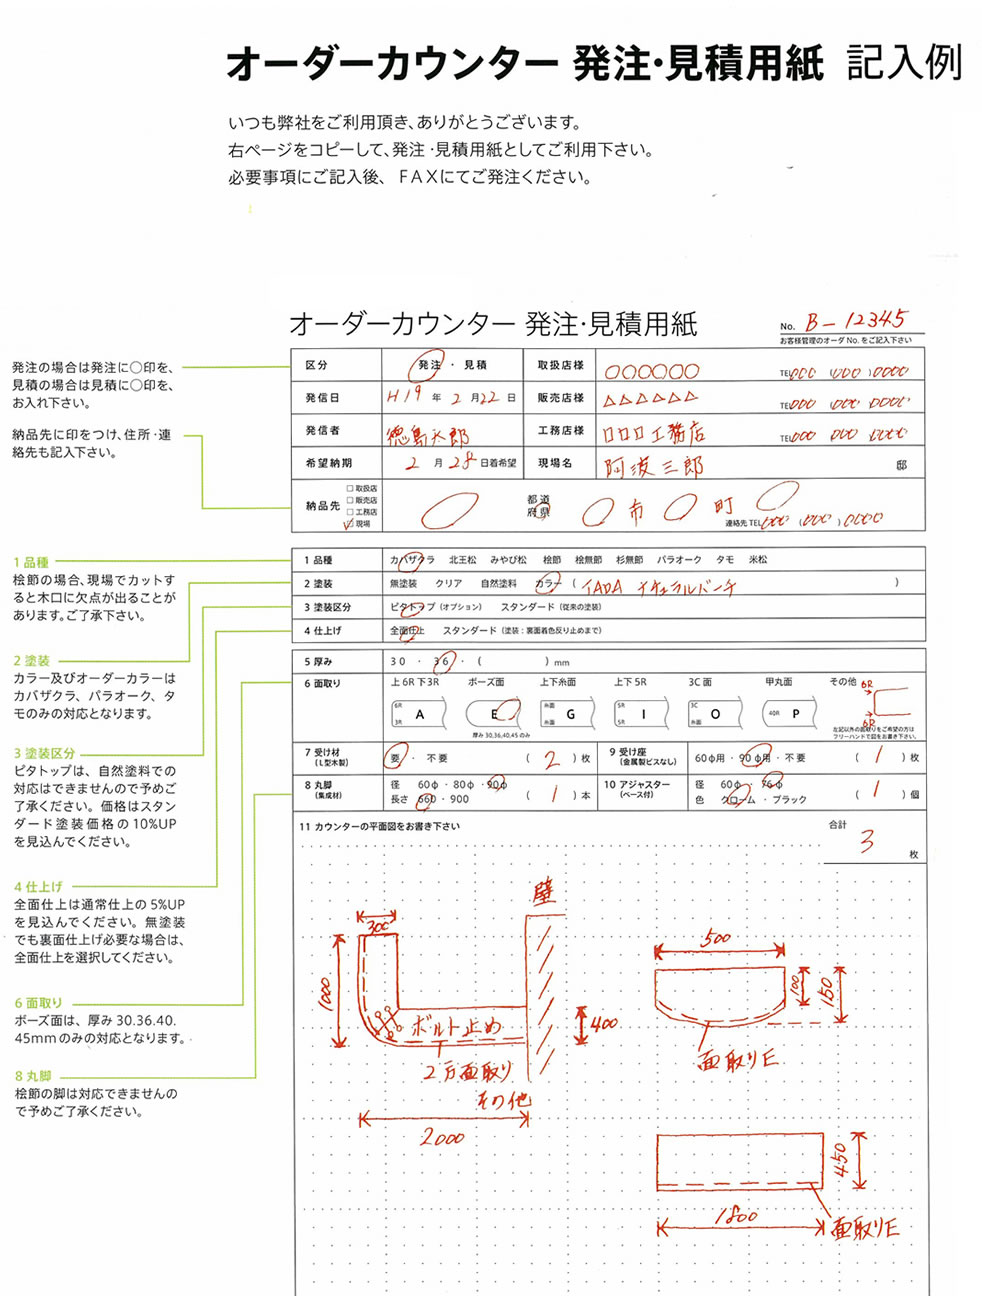 オーダーカウンター 発注・見積用紙 記入例
いつも弊社をご利用頂き、ありがとうございます。
右ページをコピーして、発注・見積用紙としてご利用下さい。
必要事項にご記入後、FAXにてご発注ください。
オーダーカウンター 発注・見積用紙
No. B-12345
お客様管理のオーダNo.をご記入下さい
発注の場合は発注に○印を、
見積の場合は見積に○印を、
お入れ下さい。
納品先に印をつけ、住所・連
絡先も記入下さい。
区分 発注・見積 取扱店様 ○○○○○○ TEL 000 (000) 0000
発信日 H19年 2月22日 販売店様 △△△△△△ TEL 000 000 0000
発信者 徳島太郎 工務店様 ロロロ工務店 TEL 000 000 0000
希望納期 2月28日着希望 現場名 阿波三郎 邸
納品先
□取扱店
□販売店
□工務店
□現場
○ 都道府県 ○市 ○町 ○
連絡先 TEL 000 (000) 0000
1 品種 カバザクラ 北王松 みやび松 桧節 桧無節 杉無節 パラオーク タモ 米松
2 塗装 無塗装 クリア 自然塗料 カラー (TADA ナチュラルバーチ)
3 塗装区分 ピタトップ(オプション) スタンダード(従来の塗装)
4 仕上げ 全面仕上 スタンダード(塗装:裏面着色反り止めまで)
5 厚み 30 ・ 36 ・ ( ) mm
6 面取り 上6R下3R ボーズ面 上下糸面 上下5R 3C面 甲丸面 その他 6R
6R 3R A E 糸面 糸面 G 5R 5R I 3C 糸面 O 40R P 6R
厚み30,36,40,45のみ
左記以外の面取りをご希望の方は
フリーハンドで図をお書き下さい。
7 受け材(L型木製) 要 ・ 不要 (2)枚 9 受け座(金属製ビスなし) 60φ用・90φ用・不要 (1)枚
8 丸脚(集成材) 径 60φ・80φ・90φ 長さ 660・900 (1)本 10 アジャスター(ベース付) 径 60φ・76φ 色 クローム・ブラック (1)個
11 カウンターの平面図をお書き下さい
合計 3 枚
1 品種
桧節の場合、現場でカットす
ると木口に欠点が出ることが
あります。ご了承下さい。
2 塗装
カラー及びオーダーカラーは
カバザクラ、パラオーク、タ
モのみの対応となります。
3 塗装区分
ピタトップは、自然塗料での
対応はできませんので予めご
了承ください。価格はスタン
ダード塗装価格の10%UP
を見込んでください。
4 仕上げ
全面仕上は通常仕上の5%UP
を見込んでください。無塗装
でも裏面仕上げ必要な場合は、
全面仕上を選択してください。
6 面取り
ボーズ面は、厚み30.36.40.
45mmのみの対応となります。
8 丸脚
桧節の脚は対応できませんの
で予めご了承ください。
壁
300
1000
ボルト止め
400
2方面取り
その他
2000
500
100
150
面取りE
450
1800
面取りE